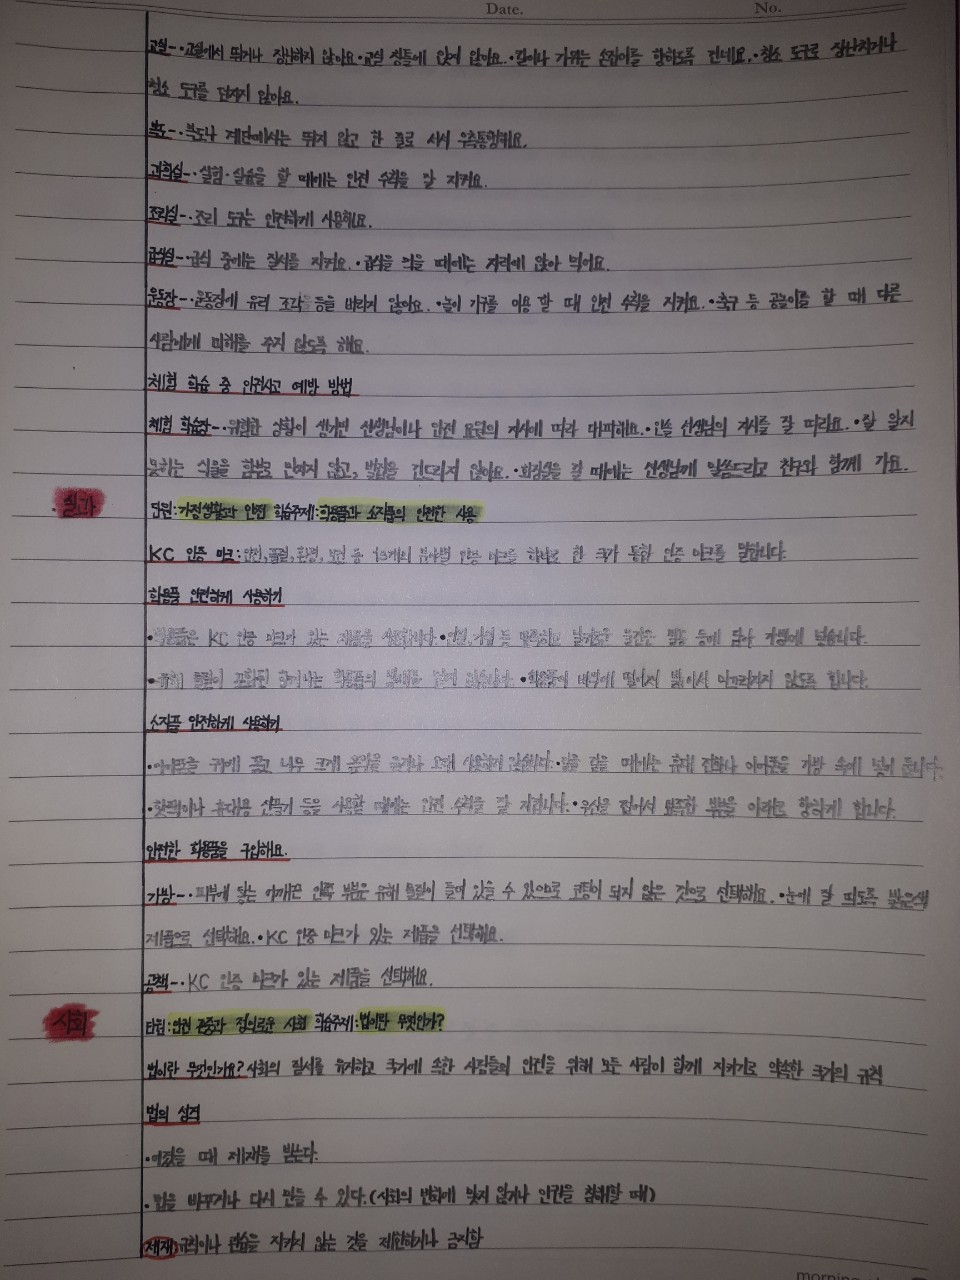 Date. No.
교실-·교실에서 뛰거나 장난하지 않아요·교실 창틀에 앉지 않아요.·칼이나 가위는 손잡이를 향하도록 건네요.·청소 도구로 장난치거나
청소 도구를 던지지 않아요.
복도-·복도나 계단에서는 뛰지 않고 한 줄로 서서 우측통행해요.
과학실-·실험·실습을 할 때에는 안전 수칙을 잘 지켜요.
조리실-·조리 도구는 안전하게 사용해요.
급식실-·급식 중에는 질서를 지켜요.·급식을 먹을 때에는 자리에 앉아 먹어요.
운동장-·운동장에 유리 조각 등을 버리지 않아요.·놀이 기구를 이용 할 때 안전 수칙을 지켜요.·축구 등 공놀이를 할 때 다른
사람에게 피해를 주지 않도록 해요.
체험 학습 중 안전사고 예방 방법
체험 학습장-·위험한 상황이 생기면 선생님이나 안전 요원의 지시에 따라 대피해요.·인솔 선생님의 지시를 잘 따라요.·잘 알지
못하는 식물을 함부로 만지지 않고, 벌집을 건드리지 않아요.·화장실을 갈 때에는 선생님께 말씀드리고 친구와 함께 가요.
실과
단원:가정생활과 안전 학습주제:학용품과 소지품의 안전한 사용
KC 인증 마크:안전,품질,환경,보건 등 13개의 분야별 인증 마크를 하나로 한 국가 통합 인증 마크를 말합니다.
학용품 안전하게 사용하기
·학용품은 KC 인증 마크가 있는 제품을 사용합니다.·연필,가위 등 뾰족하고 날카로운 물건은 필통 등에 담아 가방에 넣습니다.
·유해 물질이 포함된 향기나는 학용품의 냄새를 맡지 않습니다.·학용품이 바닥에 떨어져서 밟아서 미끄러지지 않도록 합니다.
소지품 안전하게 사용하기
·이어폰을 귀에 꽂고 너무 크게 음악을 듣거나 오래 사용하지 않습니다.·길을 걸을 때에는 휴대 전화나 이어폰을 가방 속에 넣어 둡니다.
·핫팩이나 휴대용 선풍기 등을 사용할 때에는 안전 수칙을 잘 지킵니다.·우산을 접어서 뾰족한 부분을 아래로 향하게 합니다.
안전한 학용품을 구입해요.
가방-·피부에 닿는 어깨끈 안쪽 부분은 유해 물질이 들어 있을 수 있으므로 코팅이 되지 않은 것으로 선택해요.·눈에 잘 띄도록 밝은색
제품으로 선택해요.·KC 인증 마크가 있는 제품을 선택해요.
공책-·KC 인증 마크가 있는 제품을 선택해요.
사회
단원:인권 존중과 정의로운 사회 학습주제:법이란 무엇인가?
법이란 무엇인가요?사회의 질서를 유지하고 국가에 속한 사람들의 안전을 위해 모든 사람이 함께 지키기로 약속한 국가의 규칙
법의 성격
·어겼을 때 제재를 받는다.
·법을 바꾸거나 다시 만들 수 있다.(사회의 변화에 맞지 않거나 인권을 침해할 때)
제재:규칙이나 관습을 지키지 않는 것을 제한하거나 금지함